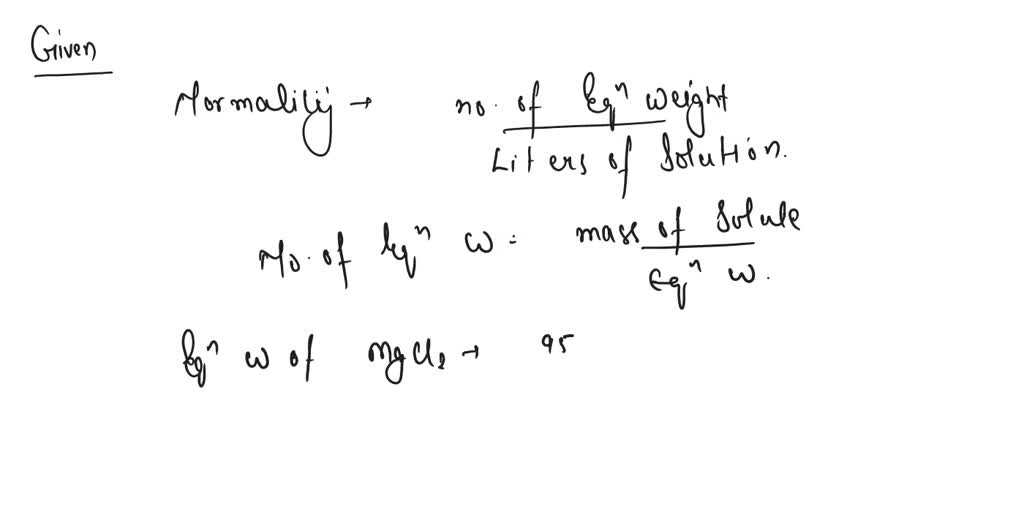 Given
Normality → no. of Eqⁿ weight
Liters of Solution.
No. of Eqⁿ W = mass of Solute
Eqⁿ W.
Eqⁿ W of MgCl₂ → 95